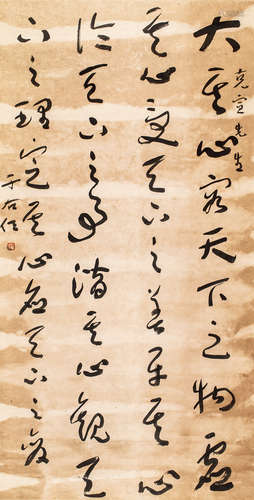 克宣先生
大其心容天下之物虛
其心受天下之善平其心
論天下之事潛其心觀天
下之理定其心應天下之變
于右任